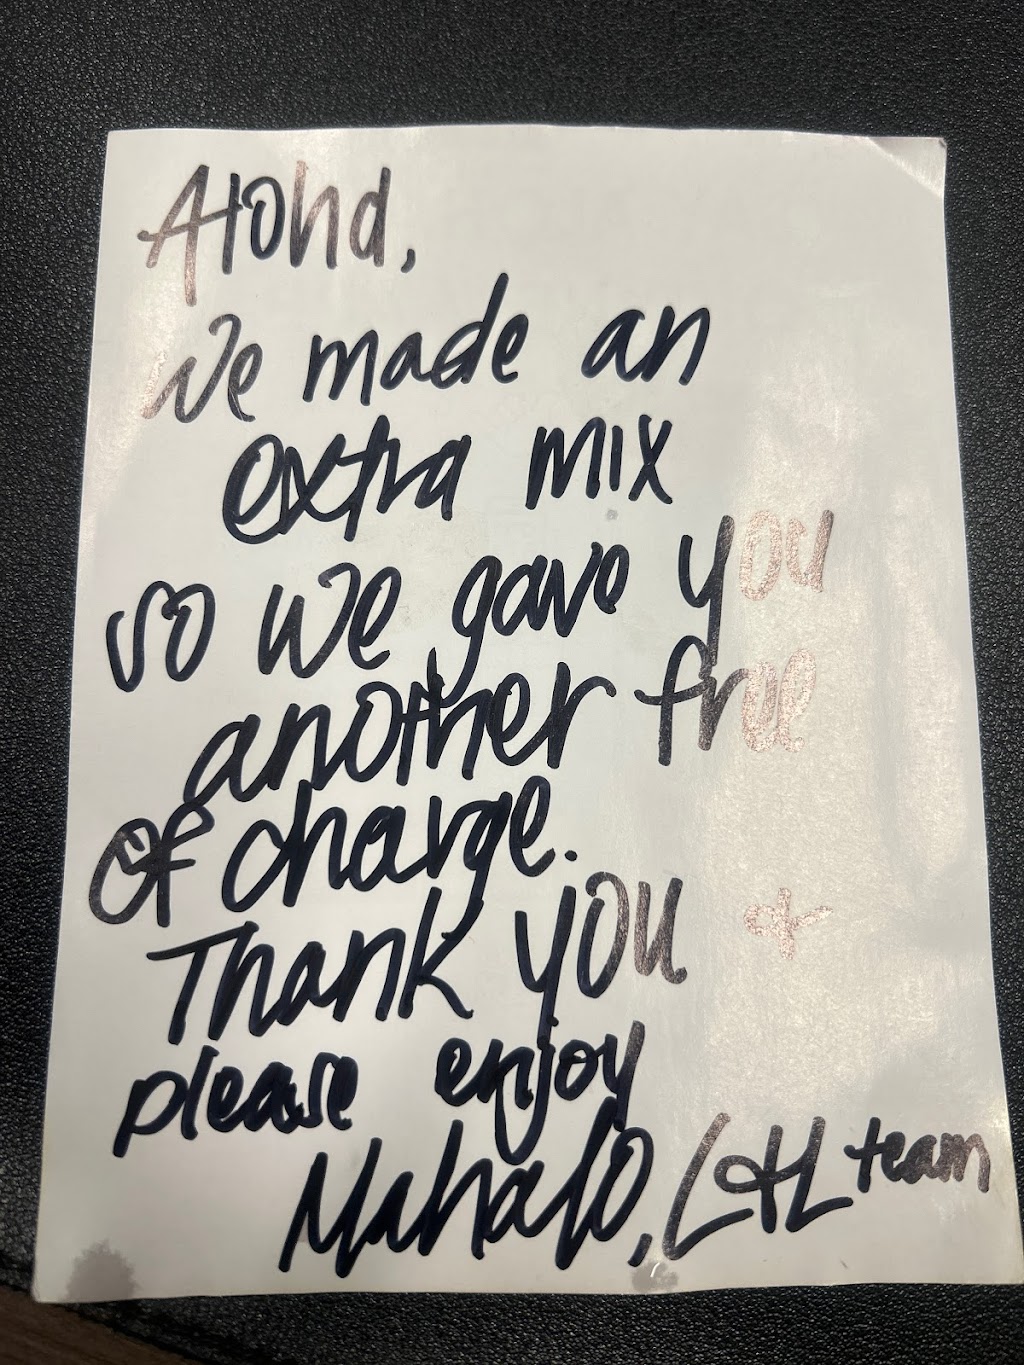 Aloha,
We made an
extra mix
so we gave you
another free
of charge.
Thank you &
please enjoy
Mahalo, L&L team